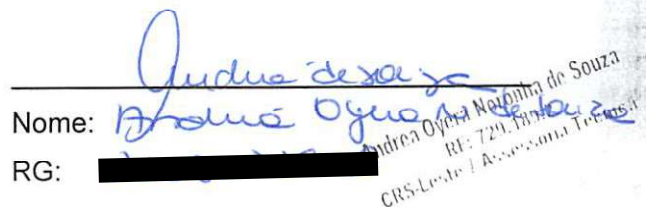 Andrea de Souza
Nome: Andrea Oyera N de Souza
Andrea Oyera Noronha de Souza
RG:
RF: 729.189
CRS-Leste / Assessoria Técnica